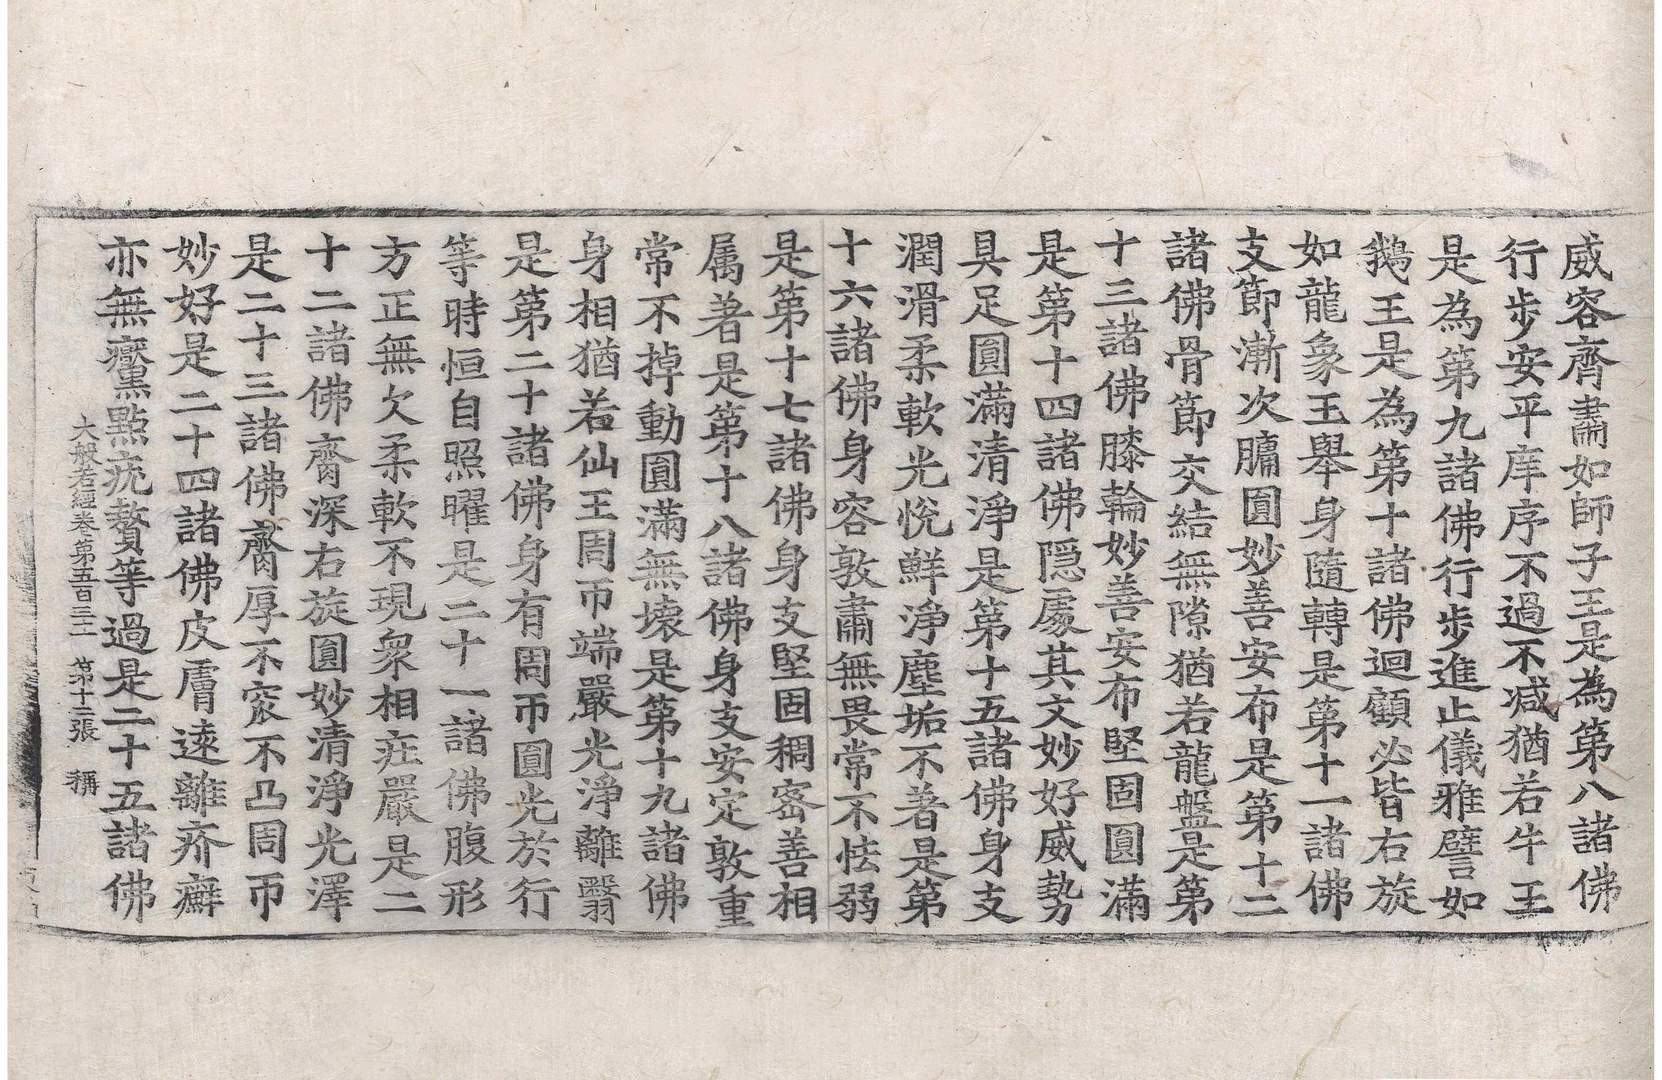 威容齊肅如師子王是為第八諸佛
行步安平庠序不過不減猶若牛王
是為第九諸佛行步進止儀雅譬如
鵝王是為第十諸佛迴顧必皆右旋
如龍象王舉身隨轉是第十一諸佛
支節漸次䏝圓妙善安布是第十二
諸佛骨節交結無隙猶若龍盤是第
十三諸佛膝輪妙善安布堅固圓滿
是第十四諸佛隱處其文妙好威勢
具足圓滿清淨是第十五諸佛身支
潤滑柔軟光悅鮮淨塵垢不著是第
十六諸佛身容敦肅無畏常不怯弱
是第十七諸佛身支堅固稠密善相
属著是第十八諸佛身支安定敦重
常不掉動圓滿無壞是第十九諸佛
身相猶若仙王周帀端嚴光淨離翳
是第二十諸佛身有周帀圓光於行
等時恒自照曜是二十一諸佛腹形
方正無欠柔軟不現衆相莊嚴是二
十二諸佛臍深右旋圓妙清淨光澤
是二十三諸佛臍厚不窊不凸周帀
妙好是二十四諸佛皮膚遠離疥癬
亦無黶點疣贅等過是二十五諸佛
大般若經卷第五百三十一 第十二張 稱